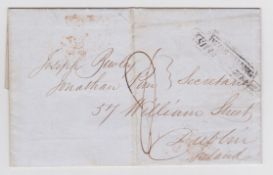 Joseph
Jonathan Pim } Secretaries
57 William Street
Dublin
Ireland